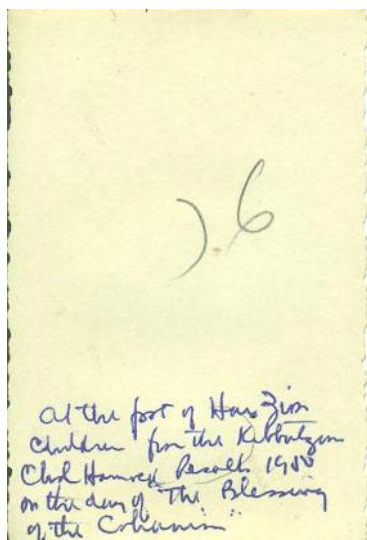 6
At the foot of Har Zion
children from the Kibbutzim
Chol Hamoed Pesach
on the day of "The Blessing
of the Cohanim"